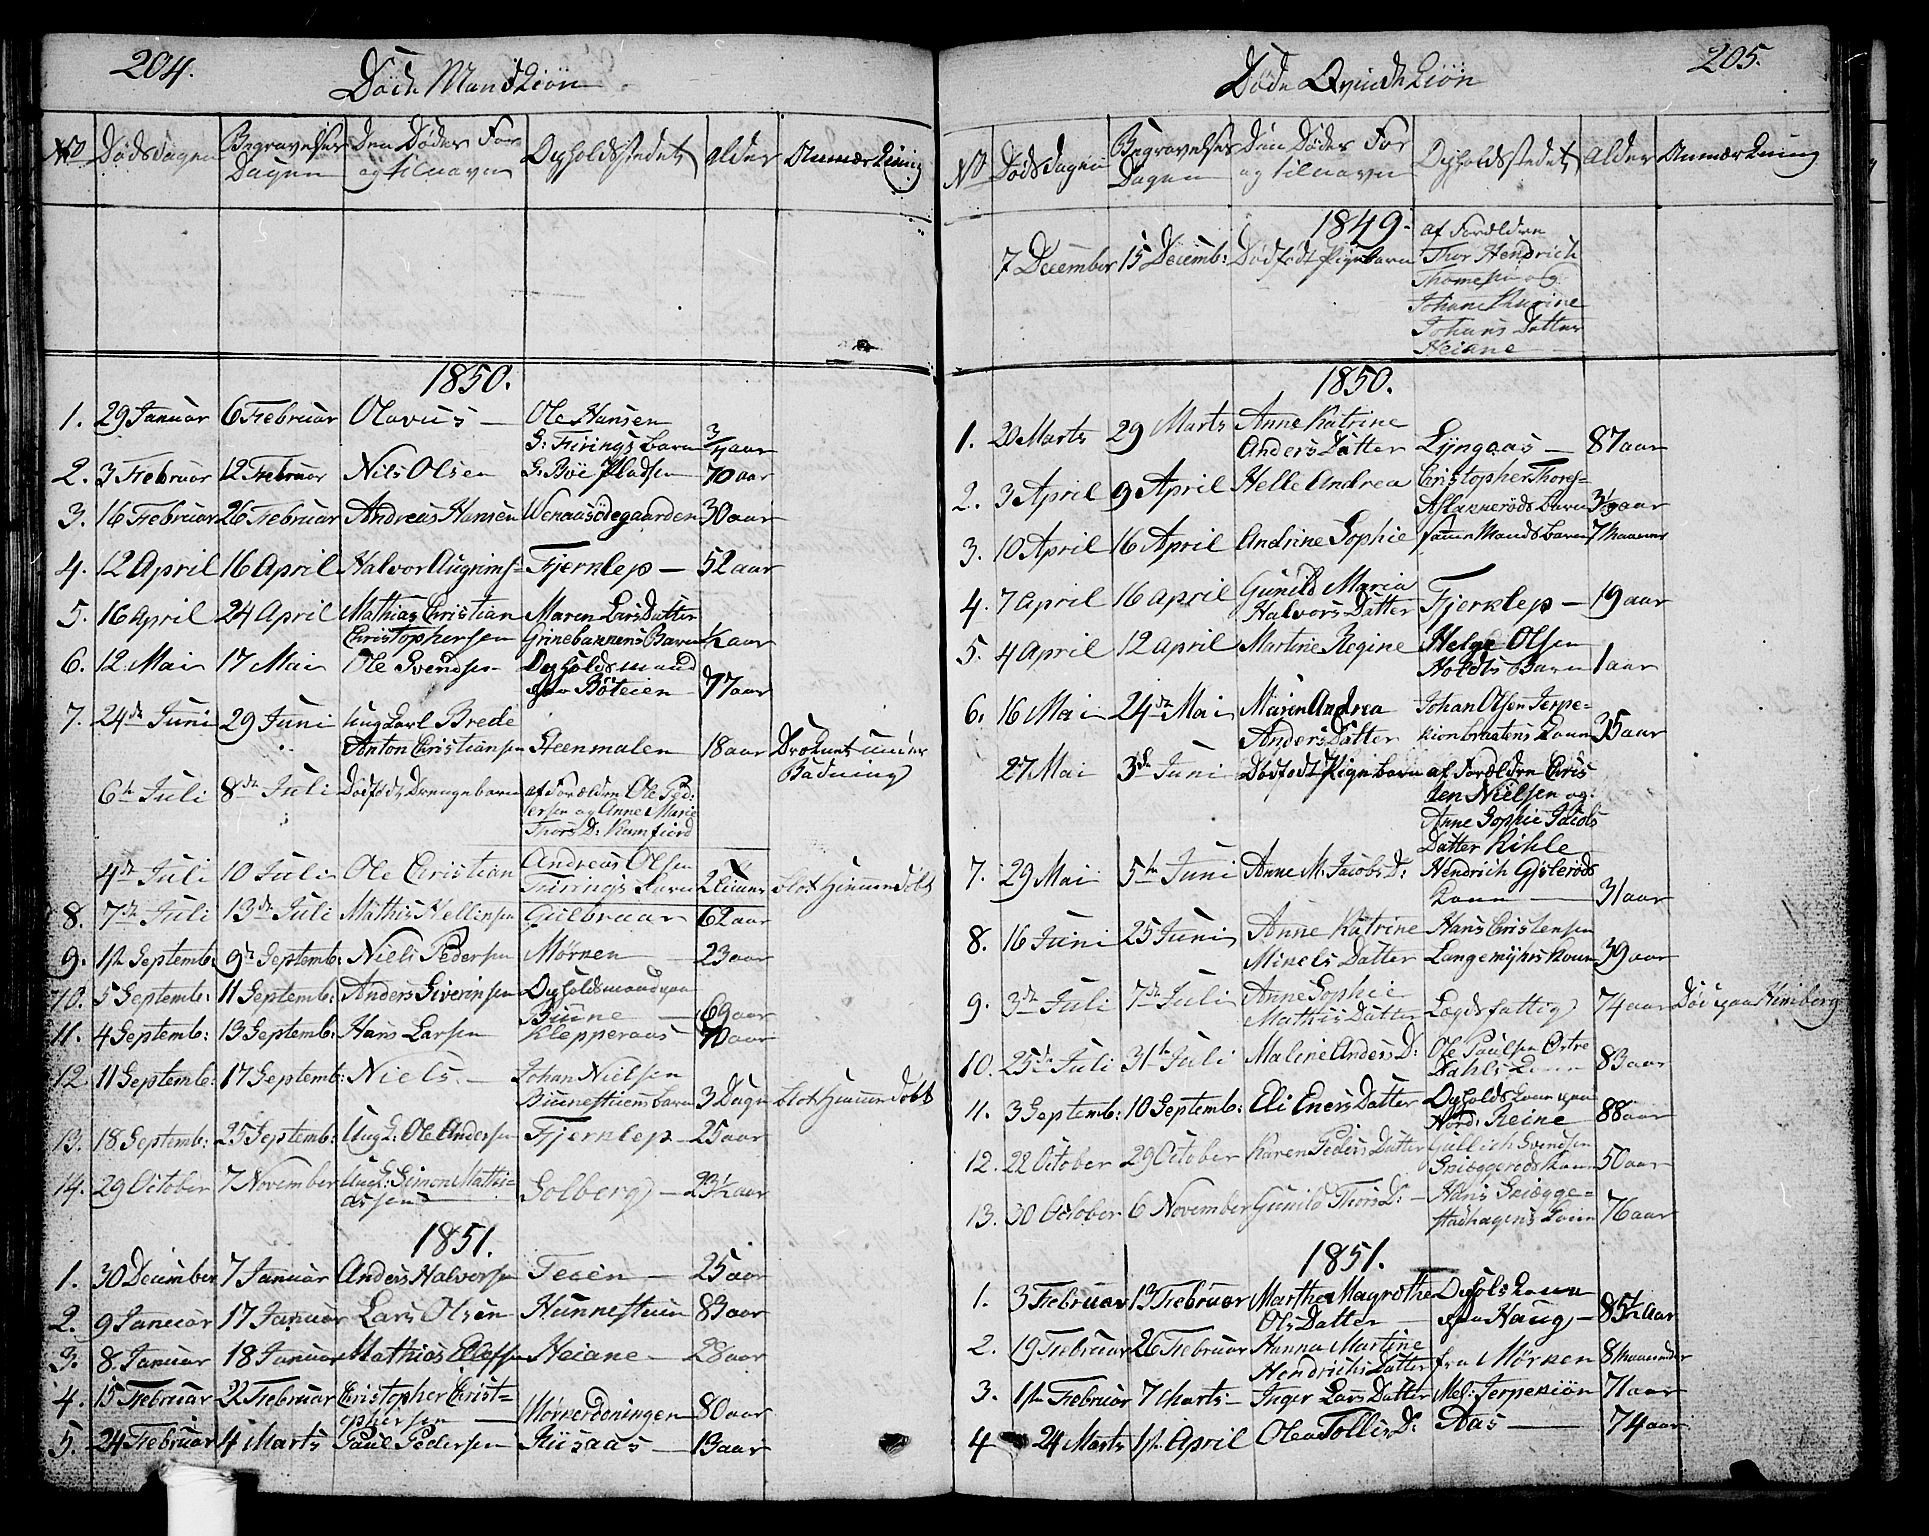 204.
Døde Mandkiøn
No Dødsdagen Begravelses Dagen Den Dødes For og tilnavn Opholdstedet alder Anmærkning
1850.
1. 29 Januar 6 Februar Olavus — Ole Hansen
G: Firings barn 3/4 aar
2. 3 Februar 12 Februar Nils Olsen G: Bøe Pladsen 70 aar
3. 16 Februar 26 Februar Andreas Hansen Wenaasødegaarden 30 aar
4. 12 April 16 April Halvor Augrims- Fjerklep — 52 aar
5. 16 April 24 April Mathias Christian Maren Lars Datter
Christophersen Grinebakkens Barn 1/2 aar
6. 12 Mai 17 Mai Ole Svendsen Opholdsmand
paa Böteien 77 aar
7. 24de Juni 29 Juni Ung Karl Brede
Anton Christiansen Steenmalen 18 aar Druknet under
Badning
6te Juli 8de Juli Dödfødt Drengebarn af Forældre Ole Ped:
ersen og Anne Marie
Thors D: Kamfiord
4de Juli 10 Juli Ole Christian Andreas Olsen
Firings Barn 2 Timer blot Hjemme Døbt
8. 7de Juli 13de Juli Mathis Hellesen Gulbraar 62 aar
9. 1ste Septemb: 9de Septemb: Niels Pedersen Mørken — 23 aar
10. 5 Septemb: 11 Septemb: Anders Siverinsen Opholdsmand paa
Biune — 69 aar
11. 4 Septemb: 13 Septemb: Hans Larsen Klepperaas 70 aar
12. 11 Septemb: 17 Septemb: Niels. — Johan Nielsen
Biunestuens barn 3 Dage blot Hjemme Døbt
13. 18 Septemb: 25 Septemb: Ung K: Ole Andersen Fjerklep — 25 aar
14. 29 October 7 November Ung K: Simon Mathi-
asen — Solberg — 23 1/2 aar
1851.
1. 30 December 7 Januar Anders Halvorsen Teien — 25 aar
2. 9 Januar 17 Januar Lars Olsen Hunnestuen 83 aar
3. 8 Januar 18 Januar Mathias Ellefsen Heiane — 28 aar
4. 15 Februar 22 Februar Christopher Christ-
ophersen — Mörkerdningen 80 aar
5. 24 Februar 4 Marts Paul Pedersen Riisaas — 13 aar
205.
Døde Qvindekiön
No Dødsdagen Begravelses Dagen Den Dødes For og tilnavn Opholdstedet Alder Anmærkning
1849.
7 December 15 Decemb: Dødfødt Pigebarn af Forældre
Thor Hendrich
Thomesen og
Johane Karine
Johans Datter
Heiane —
1850.
1. 20 Marts 29 Marts Anne Katrine
Anders Datter Lyngaas — 87 aar
2. 3 April 9 April Helle Andrea Christopher Thores-
Askannerøds Barn 3 1/2 aar
3. 10 April 16 April Andrine Sophie samme Mands barn 7 Maaneder
4. 7 April 16 April Gunild Maria
Halvors Datter Fjerklep — 19 aar
5. 4 April 12 April Martine Regine Helge Olsen
Holdts Barn 1 aar
6. 16 Mai 24de Mai Maren Andrea Johan Olsen Jerpe-
Anders Datter kionbraatens Kone 35 aar
27 Mai 3de Juni Dødfødt Pigebarn af Forældre Chris
ten Nielsen og
Anne Sophie Jacobs
Datter Kihle —
7. 29 Mai 5te Juni Anne M: Jacobs D: Hendrich Gislerøds
Kone — 31 aar
8. 16 Juni 25 Juni Anne Katrine Hans Christensen
Mikels Datter Langemyhrs Kone 39 aar
9. 3de Juli 7de Juli Anne Sophie
Mathis Datter Lægdsfattig 74 aar Død paa Himberg
10. 25de Juli 31te Juli Maline Anders D: Ole Paulsen Østre
Dahls Kone 83 aar
11. 3 Septemb: 10 Septemb: Eli Eners Datter Opholds kone paa
Nord: Reine 88 aar
12. 22 October 29 October Karen Peders Datter Gullich Svendsen
Skiæggerøds Kone 50 aar
13. 30 October 6 November Gunild Thors D: — Hans Skiægge-
stadhagens Kone 76 aar
1851.
1. 3 Februar 13 Februar Marthe Magrethe Opholskone
Ols Datter — paa Haug — 85 1/2 aar
2. 19 Februar 26 Februar Hanna Martine
Hendrichs Datter fra Mörken 8 Maaneder
3. 1ste Februar 7 Marts — Inger Lars Datter Mel: Jerpekiön 71 aar
4 24 Marts 1ste April Olea Tollis D: Aas — 74 aar